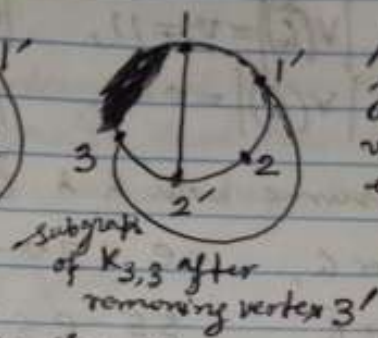 1
1'
1'
3
2
2'
subgraph
of K3,3 after
removing vertex 3'